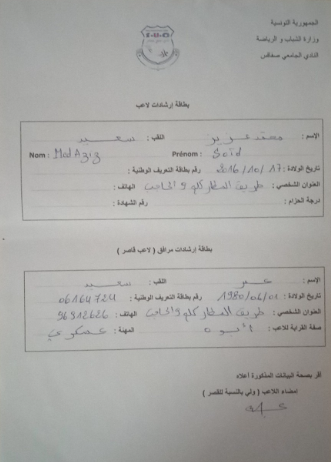 الجمهورية التونسية
وزارة الشباب و الرياضة
النادي الجامعي صفاقس
بطاقة إرشادات لاعب
الإسم : محمد عزيز اللقب : سعيد
Nom : Mohd Aziz Prénom : Said
تاريخ الولادة : 2016/10/17 رقم بطاقة التعريف الوطنية :
العنوان الشخصي : طريق المطار كلم الهاتف :
درجة الحزام : رقم الشهادة :
بطاقة إرشادات مرافق ( لاعب قاصر )
الإسم : عمر اللقب : سعيد
تاريخ الولادة : 1980/06/01 رقم بطاقة التعريف الوطنية : 06164724
العنوان الشخصي : طريق المطار كلم الهاتف : 96912626
صفة القرابة للاعب : الأبوة المهنة : عسكري
أقر بصحة البيانات المذكورة أعلاه
إمضاء اللاعب ( ولي بالنسبة للقصر )